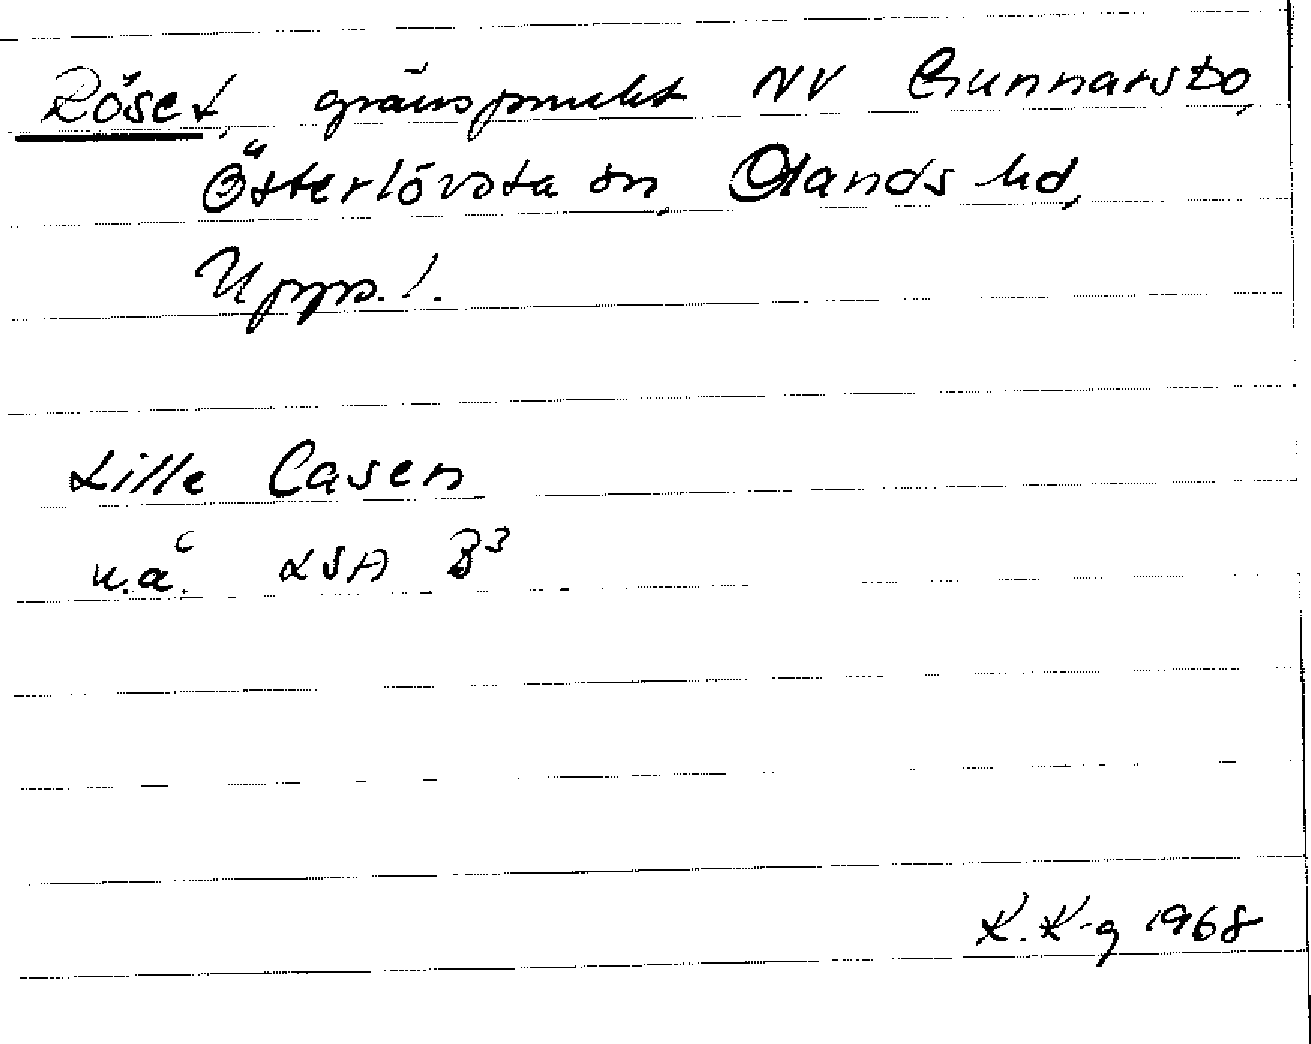 Röset, gränspunkt NV Gunnarsbo,
Österlövsta sn, Olands hd,
Upps. l.
Lille Casen
u.å. LSA B3
K. K-g 1968